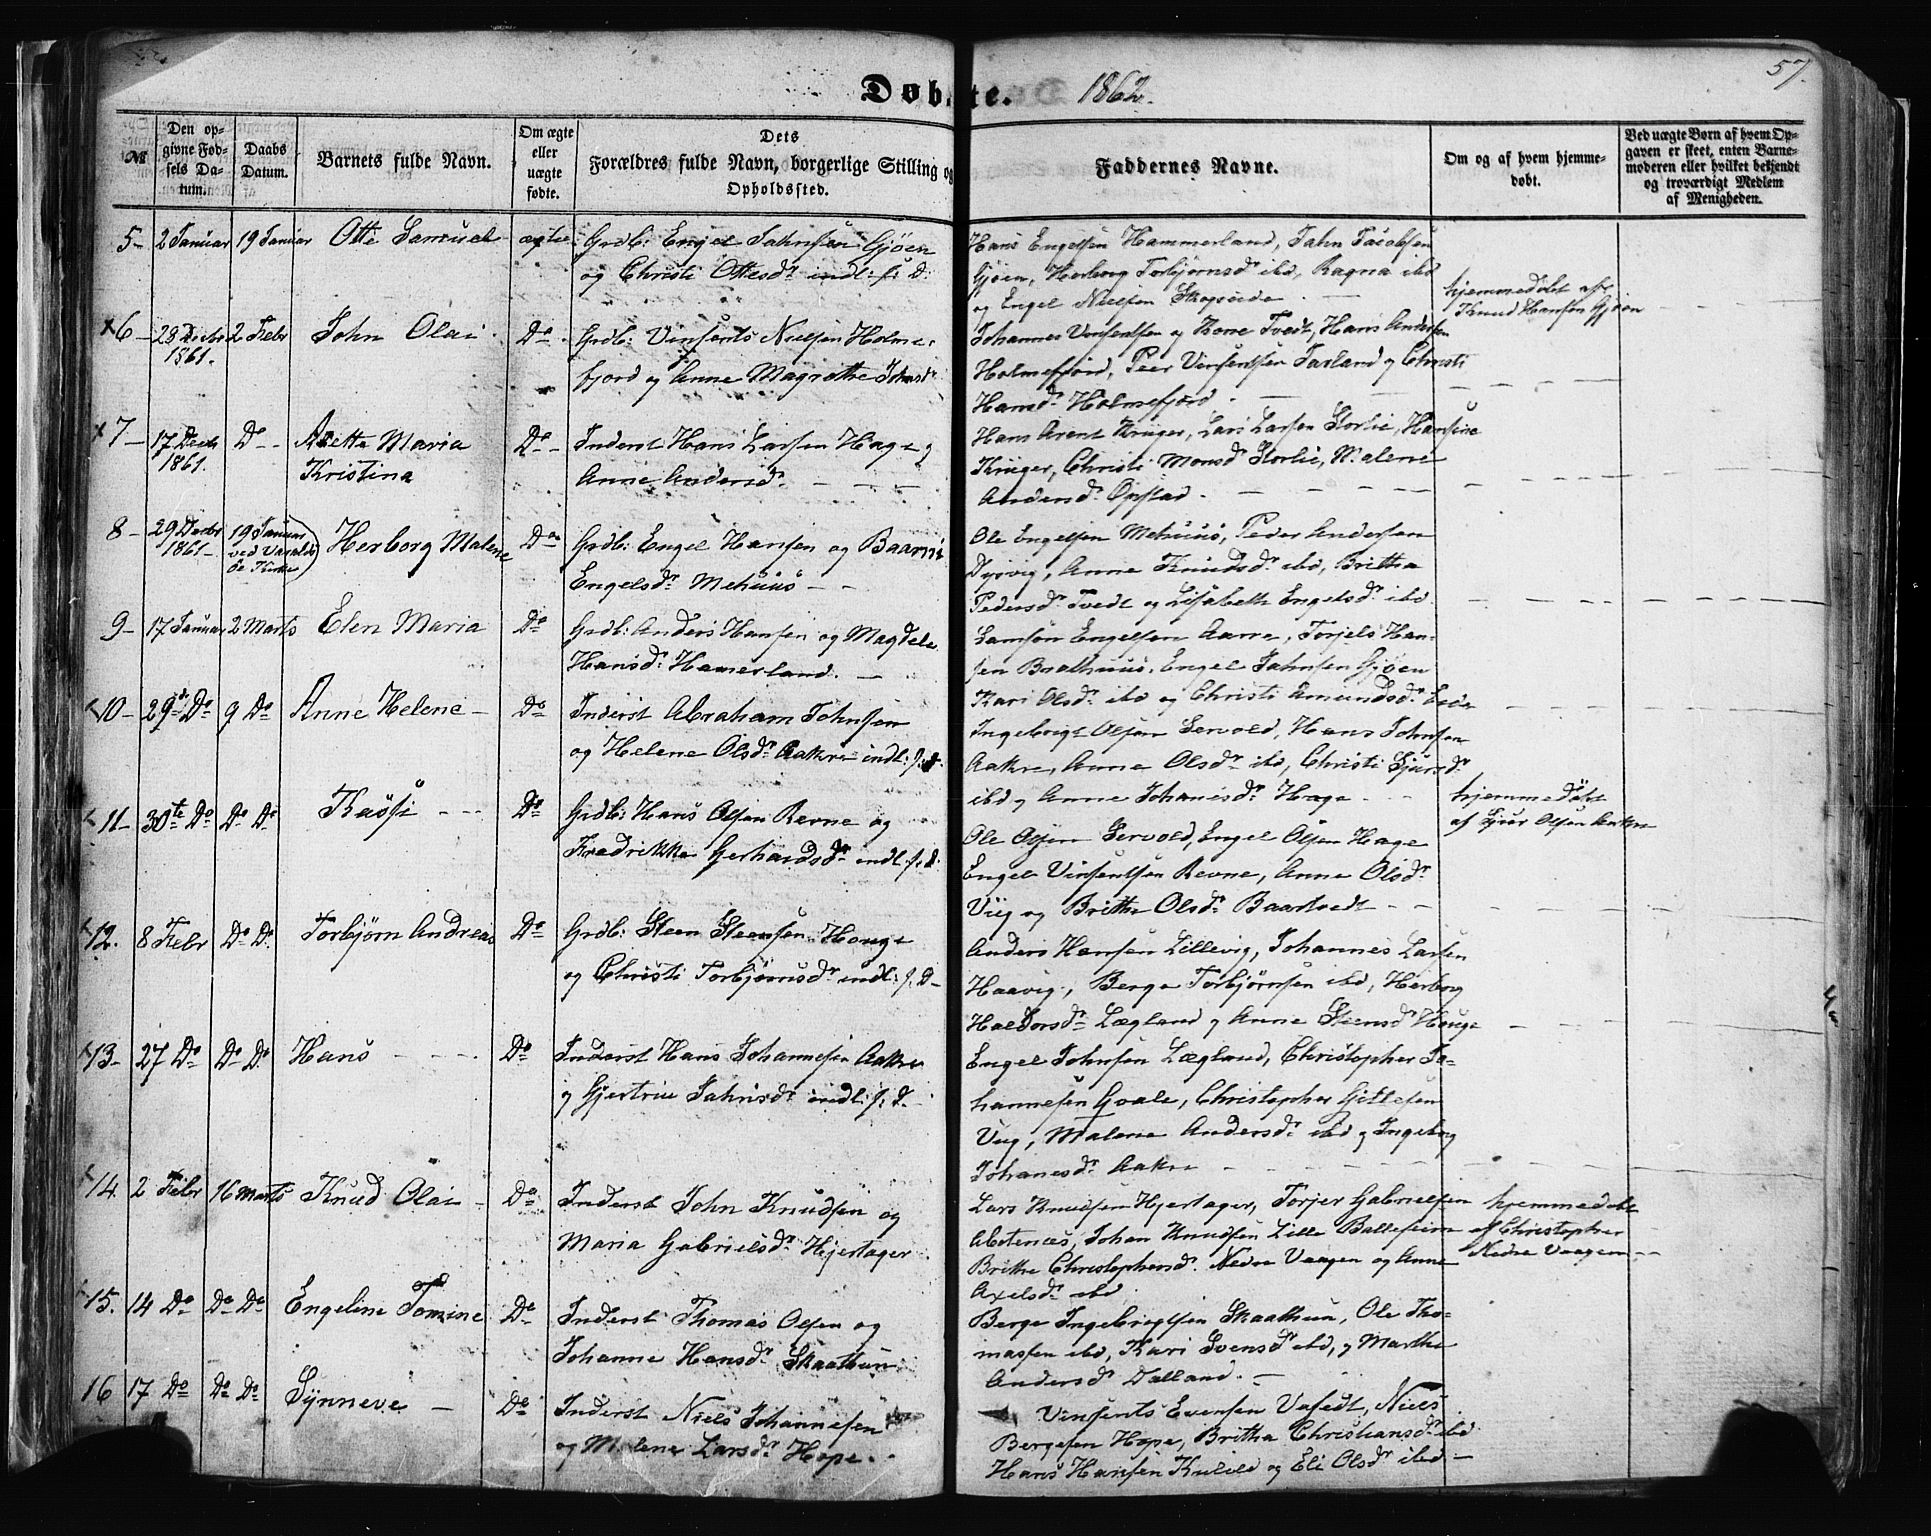 57.
Døbte. 1862.
№
Den opgivne Fødsels Datum.
Daabs Datum.
Barnets fulde Navn.
Om ægte eller uægte fødte.
Dets Forældres fulde Navn, borgerlige Stilling og Opholdssted.
Faddernes Navne.
Om og af hvem hjemmedøbt.
Ved uægte Børn af hvem Opgaven er skeet, enten Barnemoderen eller hvilket bekjendt og troværdigt Medlem af Menigheden.
5- 2 Januar 19 Januar Otte Samuel ægte Grdb: Engel Jahnsen Gjøen
og Christi Ottesdr indl: f: D:
Hans Engelsen Hammerland, Jahn Jacobsen
Gjøen, Herborg Torbjørnsdr ibd, Ragna ibd
og Engel Nielsen Skogseide
hjemmedøbt af
Knud Hansen Gjøen
x6- 28 Decbr 1861. 2 Febr John Olai Do Grdb: Vinsents Nielsen Holme-
fjord og Anne Magrethe Johnsdr
Johannes Vinsentsen og Kone Tvedt, Hans Andersen
Holmefjord, Peer Vinsentsen Tarland og Christi
Hansdr Holmefjord
x7- 17 Decbr 1861. Do Anette Maria
Kristina Do Inderst Hans Larsen Hage og
Anne Andersdr
Hans Arent Krüger, Lars Larsen Storlie, Hansine
Krüger, Christi Monsdr Storlie, Malene
Andersdr Opstad
8- 29 Decbr 1861 19 Januar ved Varaldsøe Kirke Herborg Malene Do Grdb: Engel Hansen og Baarni
Engelsdr Mehuus
Ole Engelsen Mehuus, Peder Andersen
Dysvig, Anne Knudsdr ibd, Britha
Pedersdr Tvedt og Lisabeth Engelsdr ibd
9- 17 Januar 2 Marts Elen Maria Do Grdb: Anders Hansen og Magdele
Hansdr Hamerland.
Samson Engelsen Aarre, Torjels Han-
sen Bralhuus, Engel Jahnsen Gjøen
Kari Olsdr ibd og Christi Amundsdr Eide
x10- 29de Do 9 Do Anne Helene Do Inderst Abraham Johnsen
og Helene Olsdr Aakre indl: f: d.
Ingebrigt Olsen Servold, Hans Johnsen
Aakre, Anne Olsdr ibd, Christi Sjursdr
ibd og Anne Johanisdr Hage
11- 30te Do Do Do Kasfi Do Grdb: Hans Olsen Revne og
Fredrikke Gerhardsdr indl: f: d.
Ole Olsen Servold, Engel Olsen Hage
Engel Vinsentsen Revne, Anne Olsdr
Viig og Brithe Olsdr Baartvedt
hjemmedøbt
af Sjur Olsen Aakre
12. 8 Febr Do Do Torbjørn Andreas Do Grdb: Steen Steensen Houge
og Christi Torbjørnsdr indl: f: D
Anders Hansen Lillevig, Johannes Larsen
Haavig, Berge Torbjørnsen ibd, Herborg
Haldorsdr Lægland og Anne Steensdr Houge
13- 27 Do Do Do Hans Do Inderst Hans Johannesen Aakre
og Gjertrue Jahnsdr indl: f: d.
Engel Johnsen Lægland, Christopher Jo-
hannesen Gvale, Christopher Gittlesen
Viig, Malene Andersdr ibd og Ingeborg
Johanesdr Aakre
14. 2 Febr 16 Marts Knud Olai Do Inderst John Knudsen og
Maria Gabrielsdr Hjertager
Lars Knudsen Hjertager, Torjer Gabrielsen
Alsteræs, Johan Knudsen Lille Ballesim
Brithe Christophersdr Nedre Vaagen og Anne
Axelsdr ibd
hjemmedøbt
af Christopher
Nedre Vaagen
15. 14 Do Do Do Engeline Tomine Do Inderst Thomas Olsen og
Johanne Hansdr Skaathun
Berge Ingebrigtsen Skaathun, Ole Tho-
massen ibd, Kari Svensdr ibd, og Marthe
Andersdr Dalland.
16 17 Do Do Do Synneve Do Inderst Niels Johannesen
og Malene Larsdr Hope
Vinsents Evensen Vasedt, Niels
Bergesen Hope, Britha Christiansdr ibd
Hans Hansen Kulild og Eli Olsdr ibd